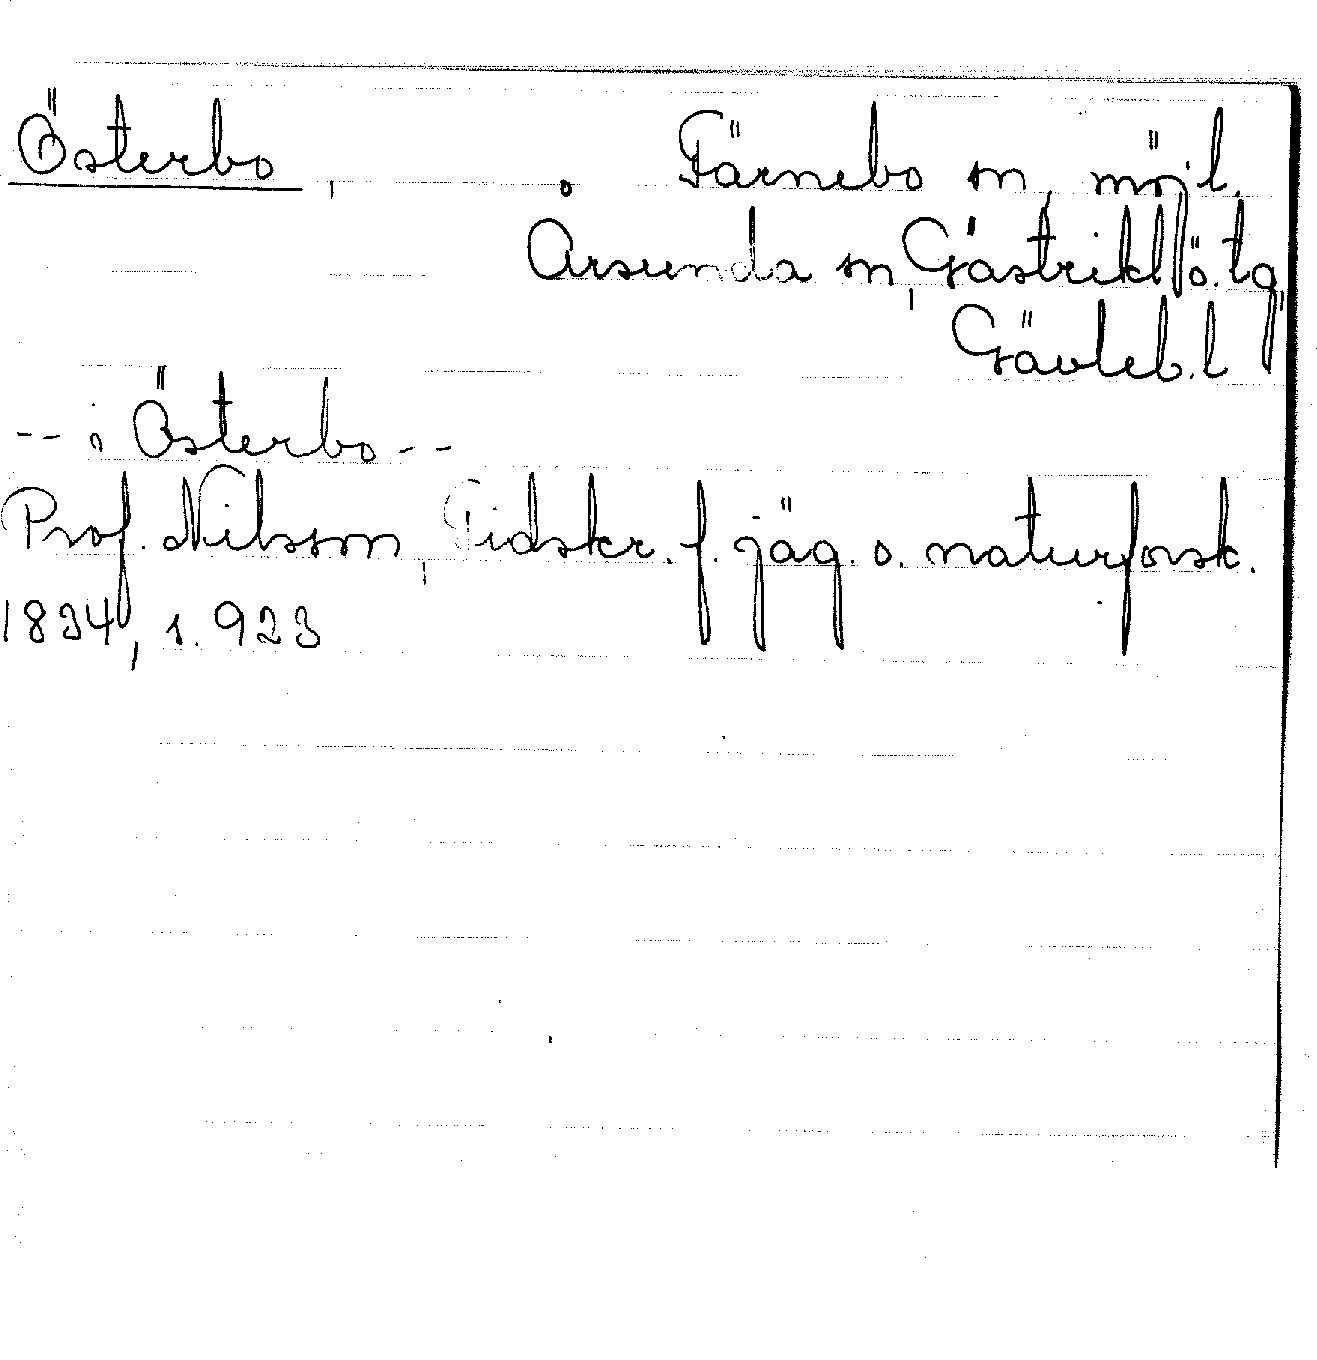 Österbo, Färnebo sn, möjl.
Årsunda sn, Gästrikl. ö. tg,
Gävleb. l
-- i Österbo --
Prof. Nilsson, Tidskr. f. jäg. o. naturforsk.
1834, s. 923